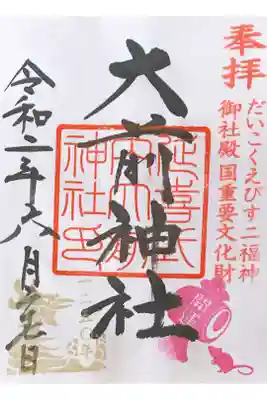 奉拝
だいこくえびす二福神
御社殿国重要文化財
大前神社
延喜式
内大前
神社印
開運
令和二年六月